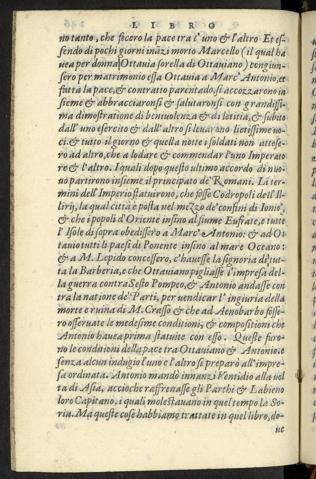 LIBRO
no tanto, che fecero la pace tra l'uno et l'altro. Et es-
sendo di pochi giorni inãzi morto Marcello (il qual ha
uea per donna Ottauia sorella di Ottauiano) congiun-
sero per matrimonio essa Ottauia a Marc'Antonio, et
fatta la pace, & contratto parentado, si accozzarono in
sieme & abbracciaronsi & salutaronsi con grandissi-
ma dimostratione di beniuolenza & di letitia, & subito
dall'uno esercito & dall'altro si leuarono lietissime uo-
ci. & tutto il giorno & quella notte i soldati non attese-
ro ad altro, che a lodare & commendar l'uno Imperato
re & l'altro. I quali dopo questo ultimo accordo di nuo-
uo partirono insieme il principato de' Romani. Li ter-
mini dell'Imperio statuirono, che fosse Codropoli dell'Il-
liri, la qual città è posta nel mezzo de' confini di Ionio,
& che i popoli d'Oriente insino al fiume Eufrate, e tutte
l'Isole di sopra obedissero a Marc'Antonio: & ad Ot
tauio tutti li paesi di Ponente insino al mare Oceano:
& a M. Lepido concessero, c'hauesse la signoria di tut-
ta la Barberia, e che Ottauiano pigliasse l'impresa del-
la guerra contra Sesto Pompeo, & Antonio andasse con
tra la natione de' Parti, per uendicar l'ingiuria della
morte e ruina di M. Crasso & che ad Aenobarbo fosse-
ro osseruate le medesime conditioni, & compositioni che
Antonio hauea prima statuite con esso. Queste furo-
no le conditioni della pace tra Ottauiano & Antonio. e
senza alcun indugio l'uno e l'altro si preparò all'impre-
sa ordinata. Antonio mandò innanzi Ventidio alla uol
ta di Asia, accioche raffrenasse gli Parthi & Labieno
loro Capitano, i quali molestauano in quel tempo la So-
ria. Ma queste cose habbiamo trattate in quel libro, do-
ue